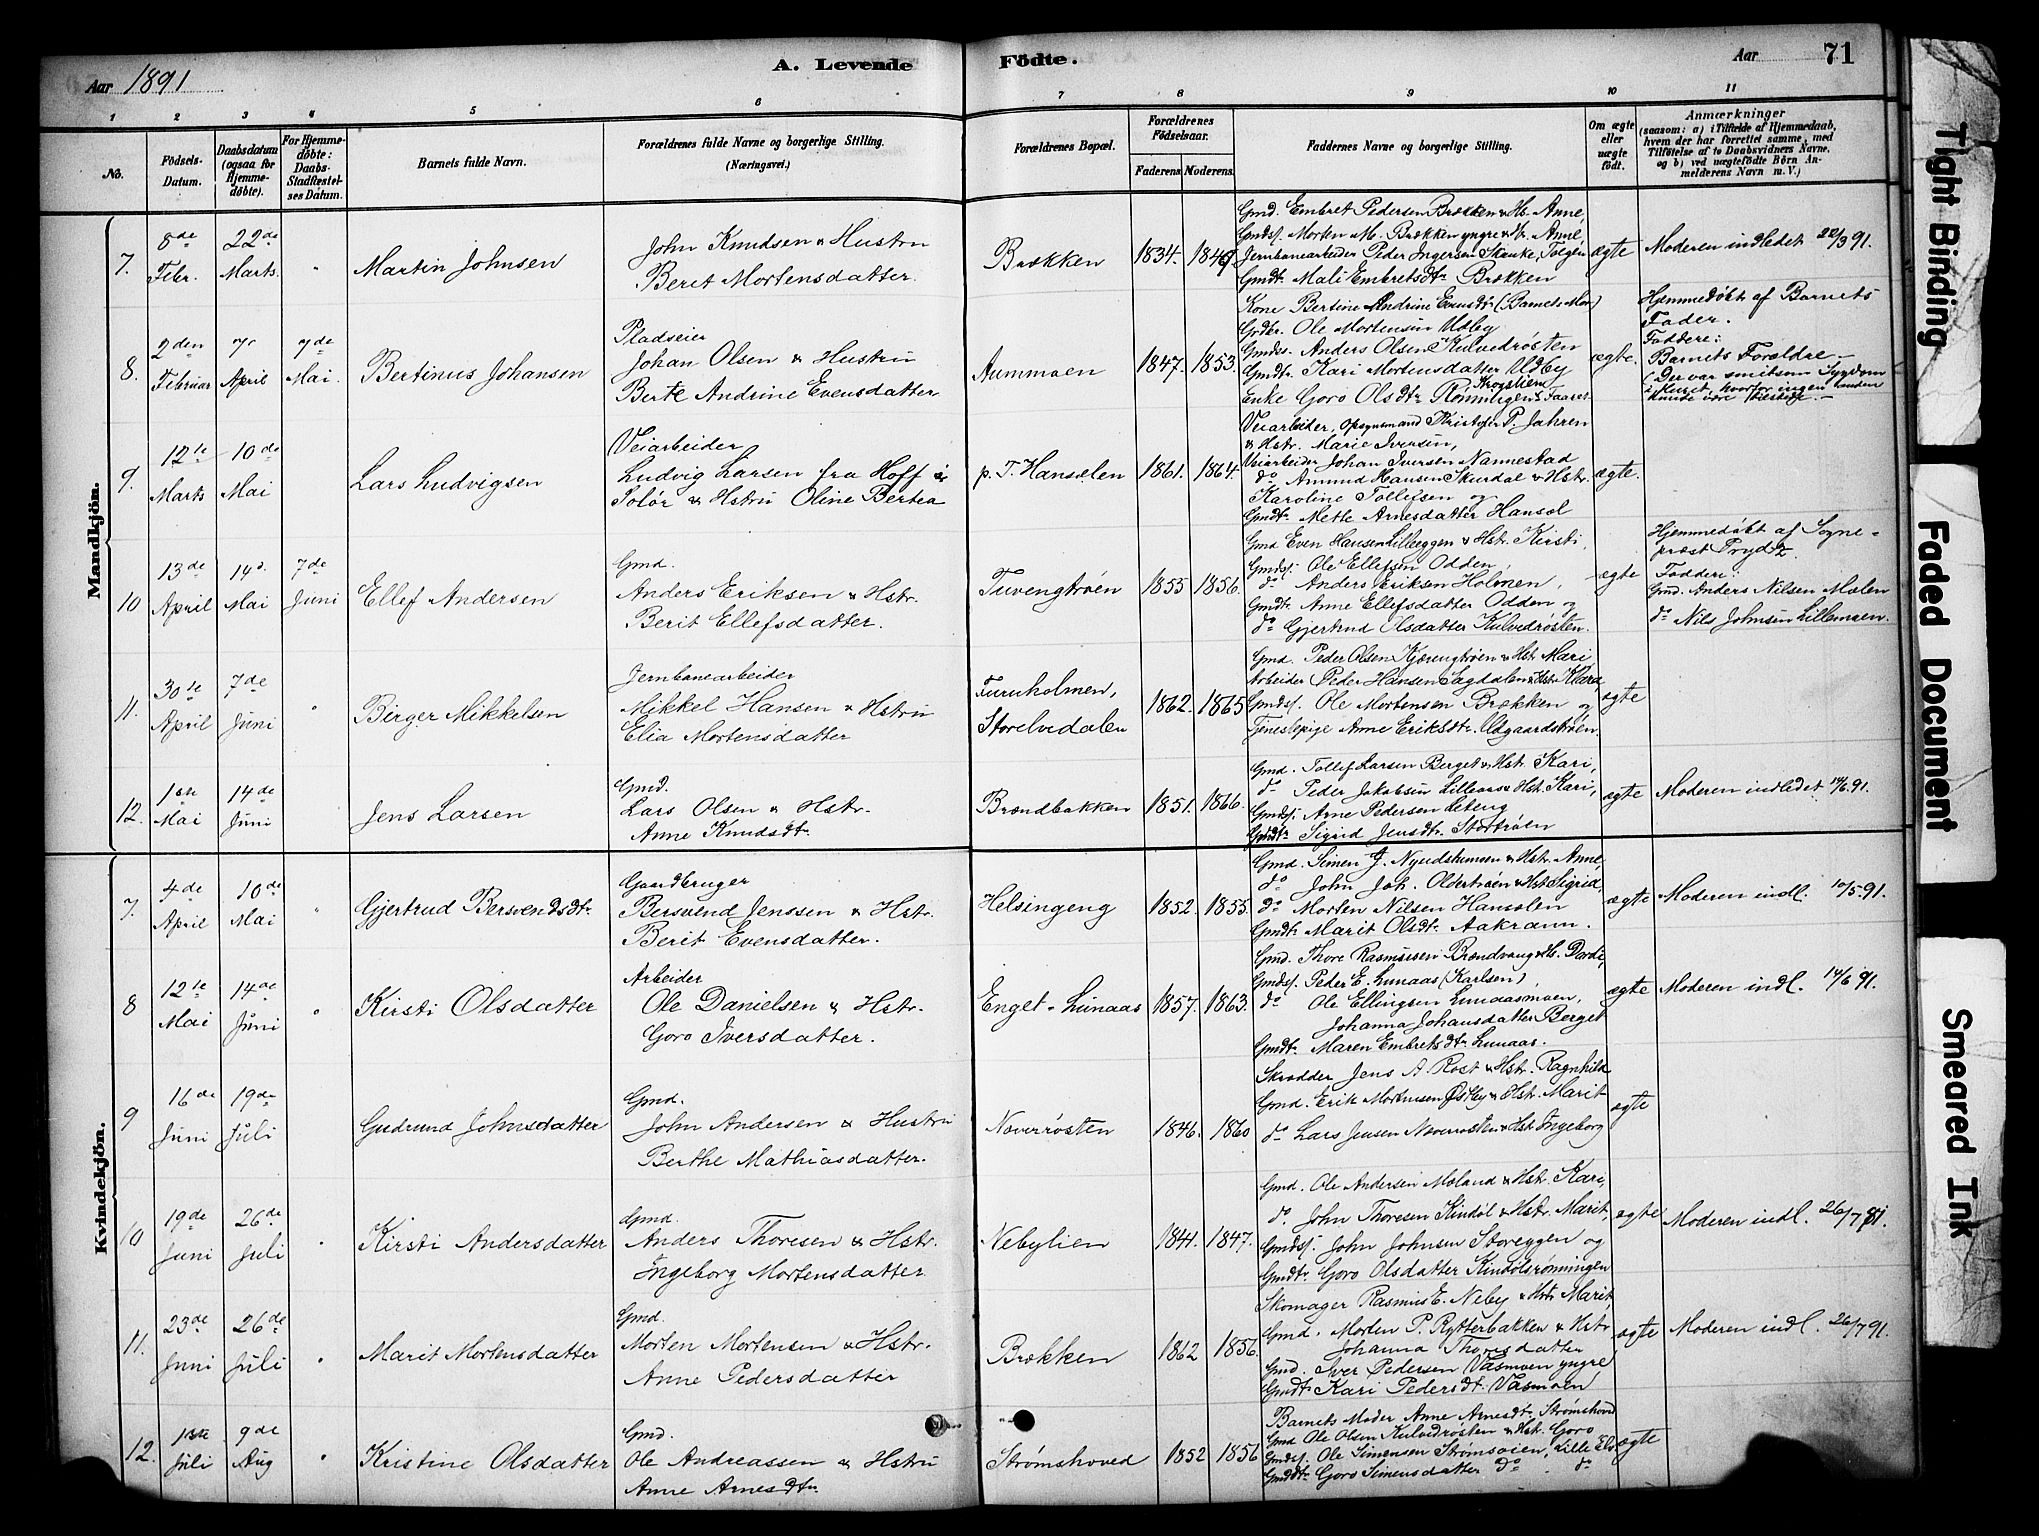 Aar 1891
A. Levende
Födte.
Aar
71
1 2 3 4 5 6 7 8 9 10 11
No.
Födsels-Datum.
Daabsdatum (ogsaa for Hjemmedöbte).
For Hjemmedöbte: Daabs-Stadfæstelses Datum.
Barnets fulde Navn.
Forældrenes fulde Navne og borgerlige Stilling. (Næringsvei.)
Forældrenes Bopæl.
Forældrenes Födselsaar.
Faderens
Moderens.
Faddernes Navne og borgerlige Stilling.
Om ægte eller uægte födt.
Anmærkninger
(saasom: a) i Tilfælde af Hjemmedaab, hvem der har forrettet samme, med Tilföielse af to Daabsvidners Navne, og b) ved uægtefödte Börn Anmelderens Navn m. V.)
Mandkjön.
7. 8de Febr. 22de Marts. " Martin Johnsen
John Knudsen & Hustru
Beret Mortensdatter.
Brækken 1834. 1849
Gmd. Embret Pedersen Brækken & Hs. Anne,
Gmdss. Morten M. Brækken yngre & Hr. Anne,
Jernbanearbeider Peder Ingersen Skanke, Tolgen
Gmdt. Mali Embretsdtr Brækken
ægte Moderen indledet 22/3 91.
8. 2den Februar April 7de Mai. Bertinus Johansen
Pladseier
Johan Olsen & Hustru
Berte Andrine Evensdatter
Aummoen 1847. 1853.
Kone Bertine Andrine Evensdtr (Barnets Mor)
Grdbr. Ole Mortensen Udby
Gmdss. Anders Olsen Kulvedrøsten
Gmdtr. Kari Mortensdatter Udby
Enke Goro Olsdtr. Rønningen
ægte.
Hjemmedøbt af Barnets
Fader.
Faddere:
Barnets Forældre —
(Der var smitsom Sygdom
i Huset, hvorfor ingen anden
kunde være tilstede. —
9. 12te Marts 10de Mai Lars Ludvigsen
Veiarbeider
Ludvig Larsen fra Hoff i
Solør & Hstru Oline Bertea
p. T. Hansælen 1861. 1864.
Veiarbeider, Opsynsmand Kristofer P. Jahren
& Hstr. Marie Iversen,
Veiarbeider Johan Iversen Nannestad
do Amund Hansen Skurdal & Hstr.
Karoline Tollefsen og
Gmdtr. Mette Arnesdatter Hansæl
ægte.
10. 13de April 14d. Mai 7de Juni Ellef Andersen
Gmd.
Anders Eriksen & Hstr.
Berit Ellefsdatter.
Tuvengtrøen 1855 1856.
Gmd Even Hansen Lilleeggen & Hstr. Kirsti,
Gmdss. Ole Ellefsen Odden,
do Anders Eriksen Holmen,
Gmdtr. Anne Ellefsdatter Odden og
do Gjertrud Olsdatter Kulvedrøsten.
ægte
Hjemmedøbt af Sogne-
præst Prydz.
Faddere:
Gmd. Anders Nilsen Moelen
do Nils Johnsen Lillemoen.
11. 30te April 7de Juni " Birger Mikkelsen
Jernbanearbeider
Mikkel Hansen & Hstru
Elia Mortensdatter
Furuholmen,
Storelvedalen
1862. 1865
Gmd. Peder Olsen Kjærengtrøen & Hst. Mari
Arbeider Peder Hansen Sagdalen & Hstr Klara,
Gmdss. Ole Mortensen Brækken og
Tjenestepige Anne Eriksdtr. Udgaardstrøen.
ægte
12. 1ste Mai 14de Juni Jens Larsen
Gmd.
Lars Olsen & Hstr.
Anne Knudsdtr.
Brændbakken 1851. 1866.
Gmd. Tollef Larsen Berget & Hst. Kari,
do Peder Jakobsen Lilleaas & Hst. Kari,
Gmdss. Arne Pedersen Leteng
Gmdtr. Sigrid Jensdtr. Stortrøen
ægte Moderen indledet 14/6 91.
Kvindekjön.
7. 4de April 10de Mai " Gjertrud Bersvendsdtr.
Gaardbruger
Bersvend Jenssen & Hstr.
Berit Evensdatter.
Helsingeng 1852. 1855.
Gmd. Simen J. Nyudstumoen & Hstr. Anne
do John Joh. Oldertrøen & Hst. Sigrid,
do Morten Nilsen Hansælen
Gmdtr. Marit Olsdtr. Aakrann.
ægte Moderen indl. 10/5 91.
8 12te Mai 14de Juni " Kirsti Olsdatter
Arbeider
Ole Danielsen & Hstr.
Goro Iversdatter.
Enget - Lunaas 1857. 1863.
Gmd. Thore Rasmussen Brændvang & Hs. Dordi,
Gmdss. Peder E. Lunaas (Karlsen),
do Ole Ellingsen Lunaasmoen,
Johanna Johansdatter Berget
Gmdtr. Maren Embretsdtr. Lunaas.
ægte Moderen indl. 14/6 91.
9 16de Juni 19de Juli Gudrund Johnsdatter
Gmd.
John Andersen & Hustru
Berthe Mathiasdatter.
Noverrøsten 1846. 1860
Skrædder Jens A. Røst & Hstr. Ragnhild
Gmd. Erik Mortensen Østby & Hstr. Marit
do Lars Jensen Noverrøsten & Hst. Ingeborg
ægte
10 19de Juni 26de Juli " Kirsti Andersdatter
Gmd.
Anders Thoresen & Hstr.
Ingeborg Mortensdatter
Nebylien 1844. 1847.
Gmd. Ole Andersen Moland & Hstr. Kari,
do John Thoresen Kindøl & Hstr. Marit,
Gmdss. John Johnsen Storeggen og
Gmdtr. Goro Olsdatter Kindølsrønningen
ægte Moderen indl. 26/7 91.
11. 23de Juni 26de Juli " Marit Mortensdatter
Gmd.
Morten Mortensen & Hstr.
Anne Pedersdatter
Brækken 1862 1856.
Skomager Rasmus E. Neby & Hstr. Marit,
Gmd. Morten P. Rytterbakken & Hstr
Johanna Thoresdatter
Gmd. Iver Pedersen Vasmoen yngre,
Gmdtr. Kari Pedersdt. Vasmoen
ægte Moderen indl. 26/7 91.
12. 1ste Juli 9de Aug " Kristine Olsdatter
Gmd.
Ole Andreassen & Hstru
Anne Arnesdtr.
Strømshoved 1852 1856
Barnets Moder Anne Arnesdtr. Strømshoved
Gmd Ole Olsen Kulvedrøsten & Hst. Goro
Gmdss. Ole Simensen Strømsøien, Lille Elv
Gmdtr. Goro Simensdatter do do
ægte
Tight Binding
Faded Document
Smeared Ink